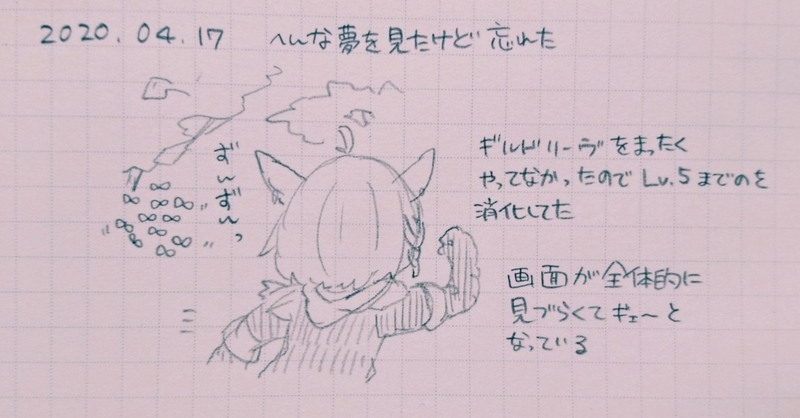 2020.04.17 へんな夢を見たけど忘れた
ギルドリーヴをまったく
やってなかったのでLv.5までのを
消化してた
ず〜ず〜っ
画面が全体的に
見づらくてギェ〜と
なっている